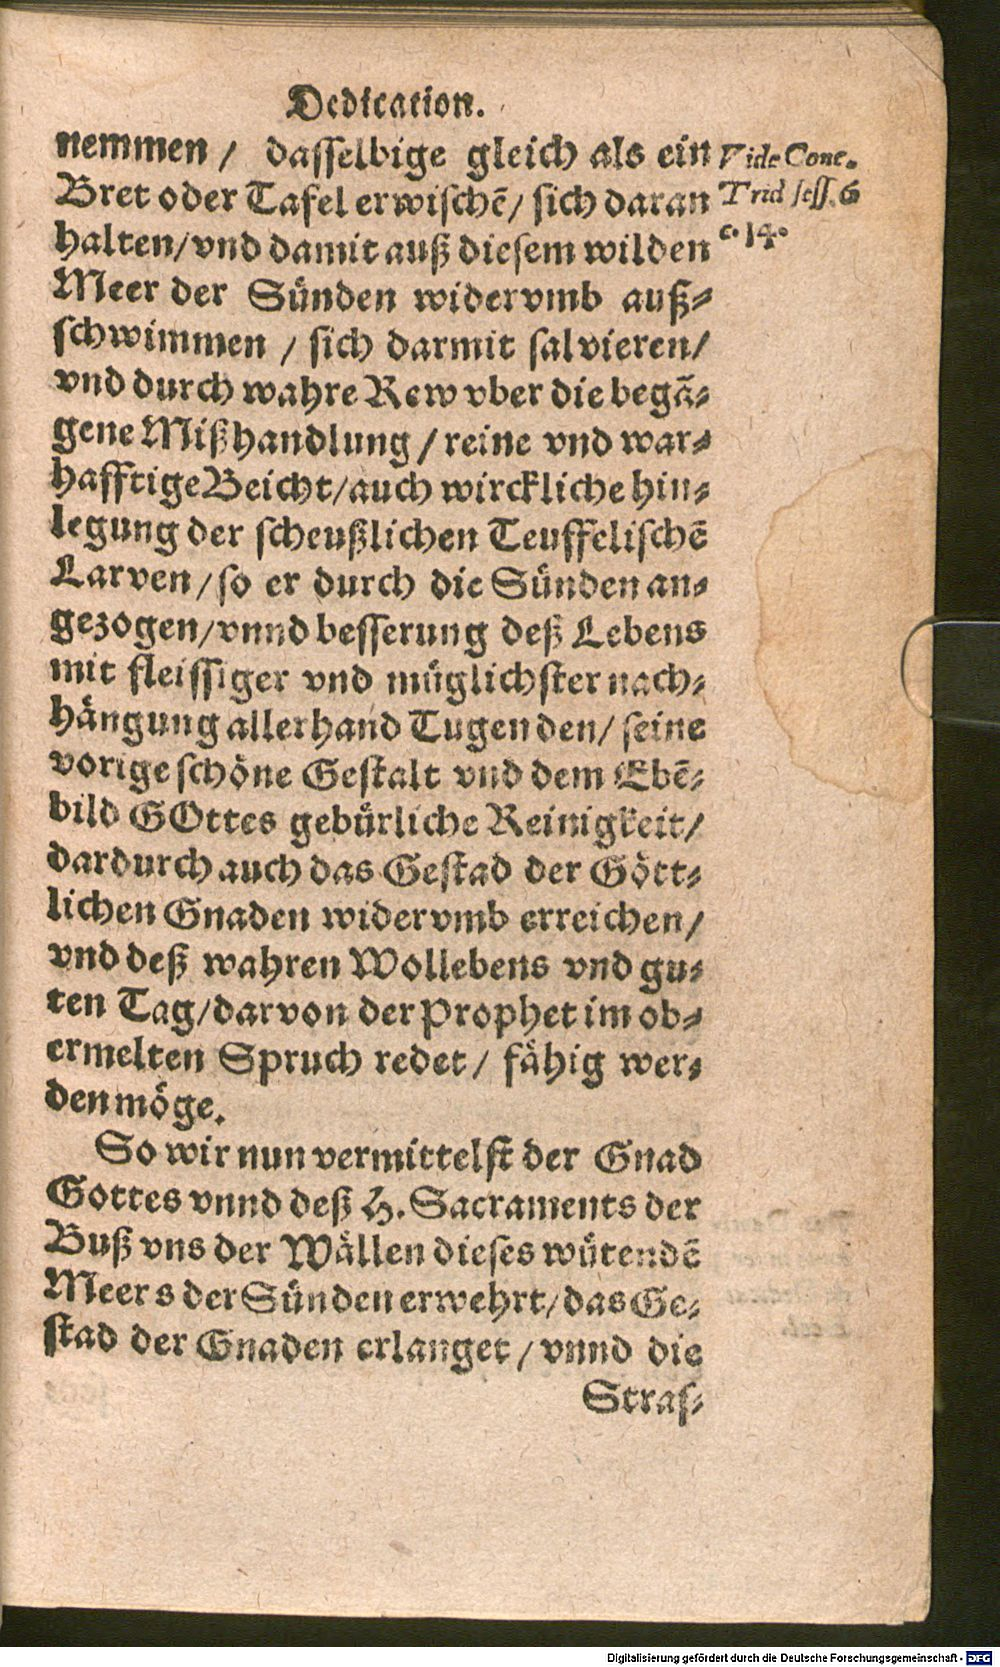 Dedication.
nemmen / dasselbige gleich als ein
Bret oder Tafel erwischē/ sich daran
halten/vnd damit auß diesem wilden
Meer der Sünden widervmb auß-
schwimmen / sich darmit salvieren/
vnd durch wahre Rew vber die begā-
gene Mißhandlung / reine vnd war-
hafftige Beicht/auch wirckliche hin-
legung der scheußlichen Teuffelischē
Larven/so er durch die Sünden an-
gezogen/vnnd besserung deß Lebens
mit fleissiger vnd müglichster nach-
hängung allerhand Tugenden/ seine
vorige schöne Gestalt vnd dem Ebē-
bild GOttes gebürliche Reinigkeit/
dardurch auch das Gestad der Gött-
lichen Gnaden widervmb erreichen/
vnd deß wahren Wollebens vnd gu-
ten Tag/darvon der Prophet im ob-
ermelten Spruch redet / fähig wer-
den möge.
So wir nun vermittelst der Gnad
Gottes vnnd deß H. Sacraments der
Buß vns der Wällen dieses wütendē
Meers der Sünden erwehrt/das Ge-
stad der Gnaden erlanget / vnnd die
Stras-
Vide Conc.
Trid sess. 6
c. 14.
Digitalisierung gefördert durch die Deutsche Forschungsgemeinschaft - DFG